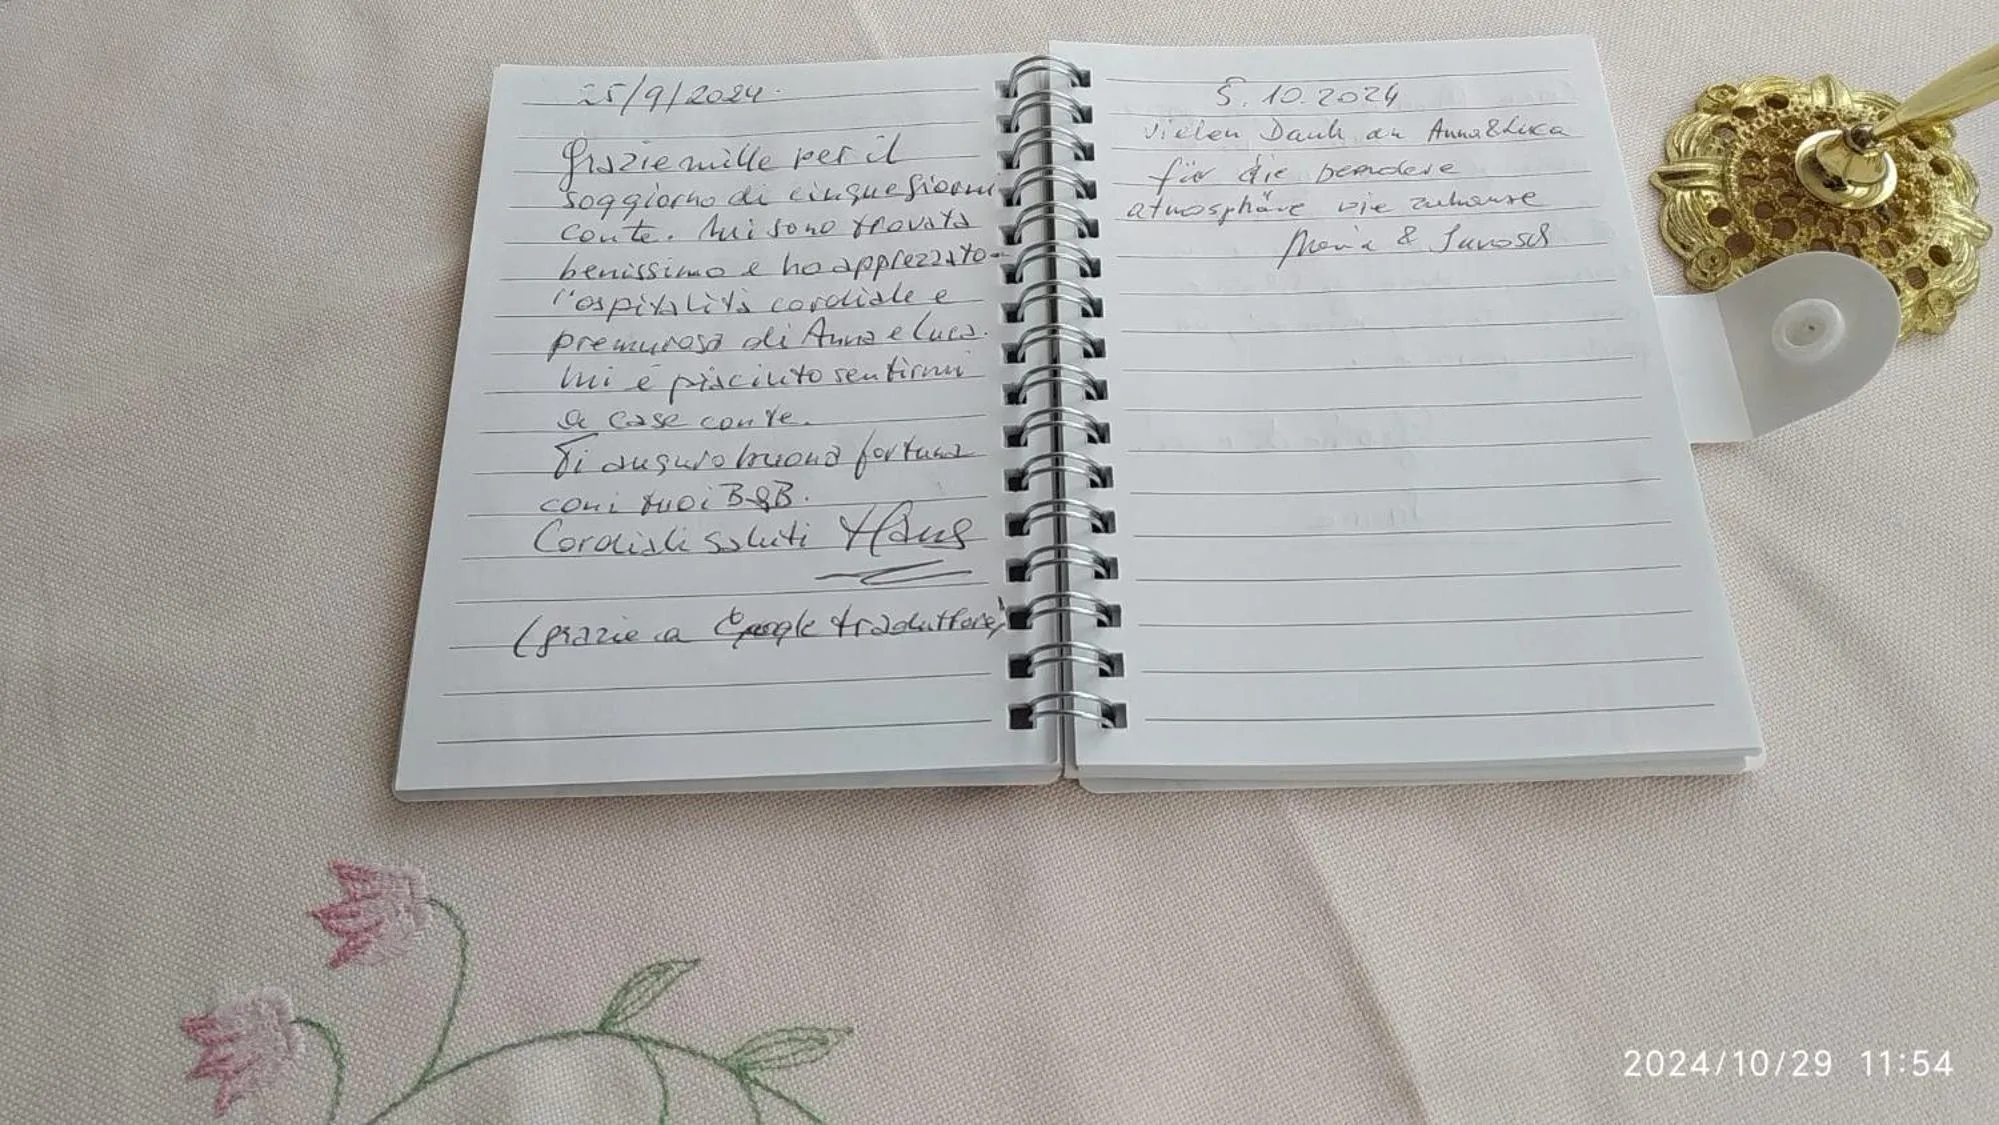 25/9/2024.
Grazie mille per il
soggiorno di cinque giorni
con te. Mi sono trovata
benissimo e ho apprezzato
l'ospitalità cordiale e
premurosa di Anna e Luca.
Mi è piaciuto sentirmi
a case con te.
Ti auguro buona fortuna
con i tuoi B&B.
Cordiali saluti Hans
(grazie a Google traduttore)
5.10.2024
Vielen Dank an Anna&Luca
für die besondere
atmosphäre wie zuhause
Maria &
2024/10/29 11:54